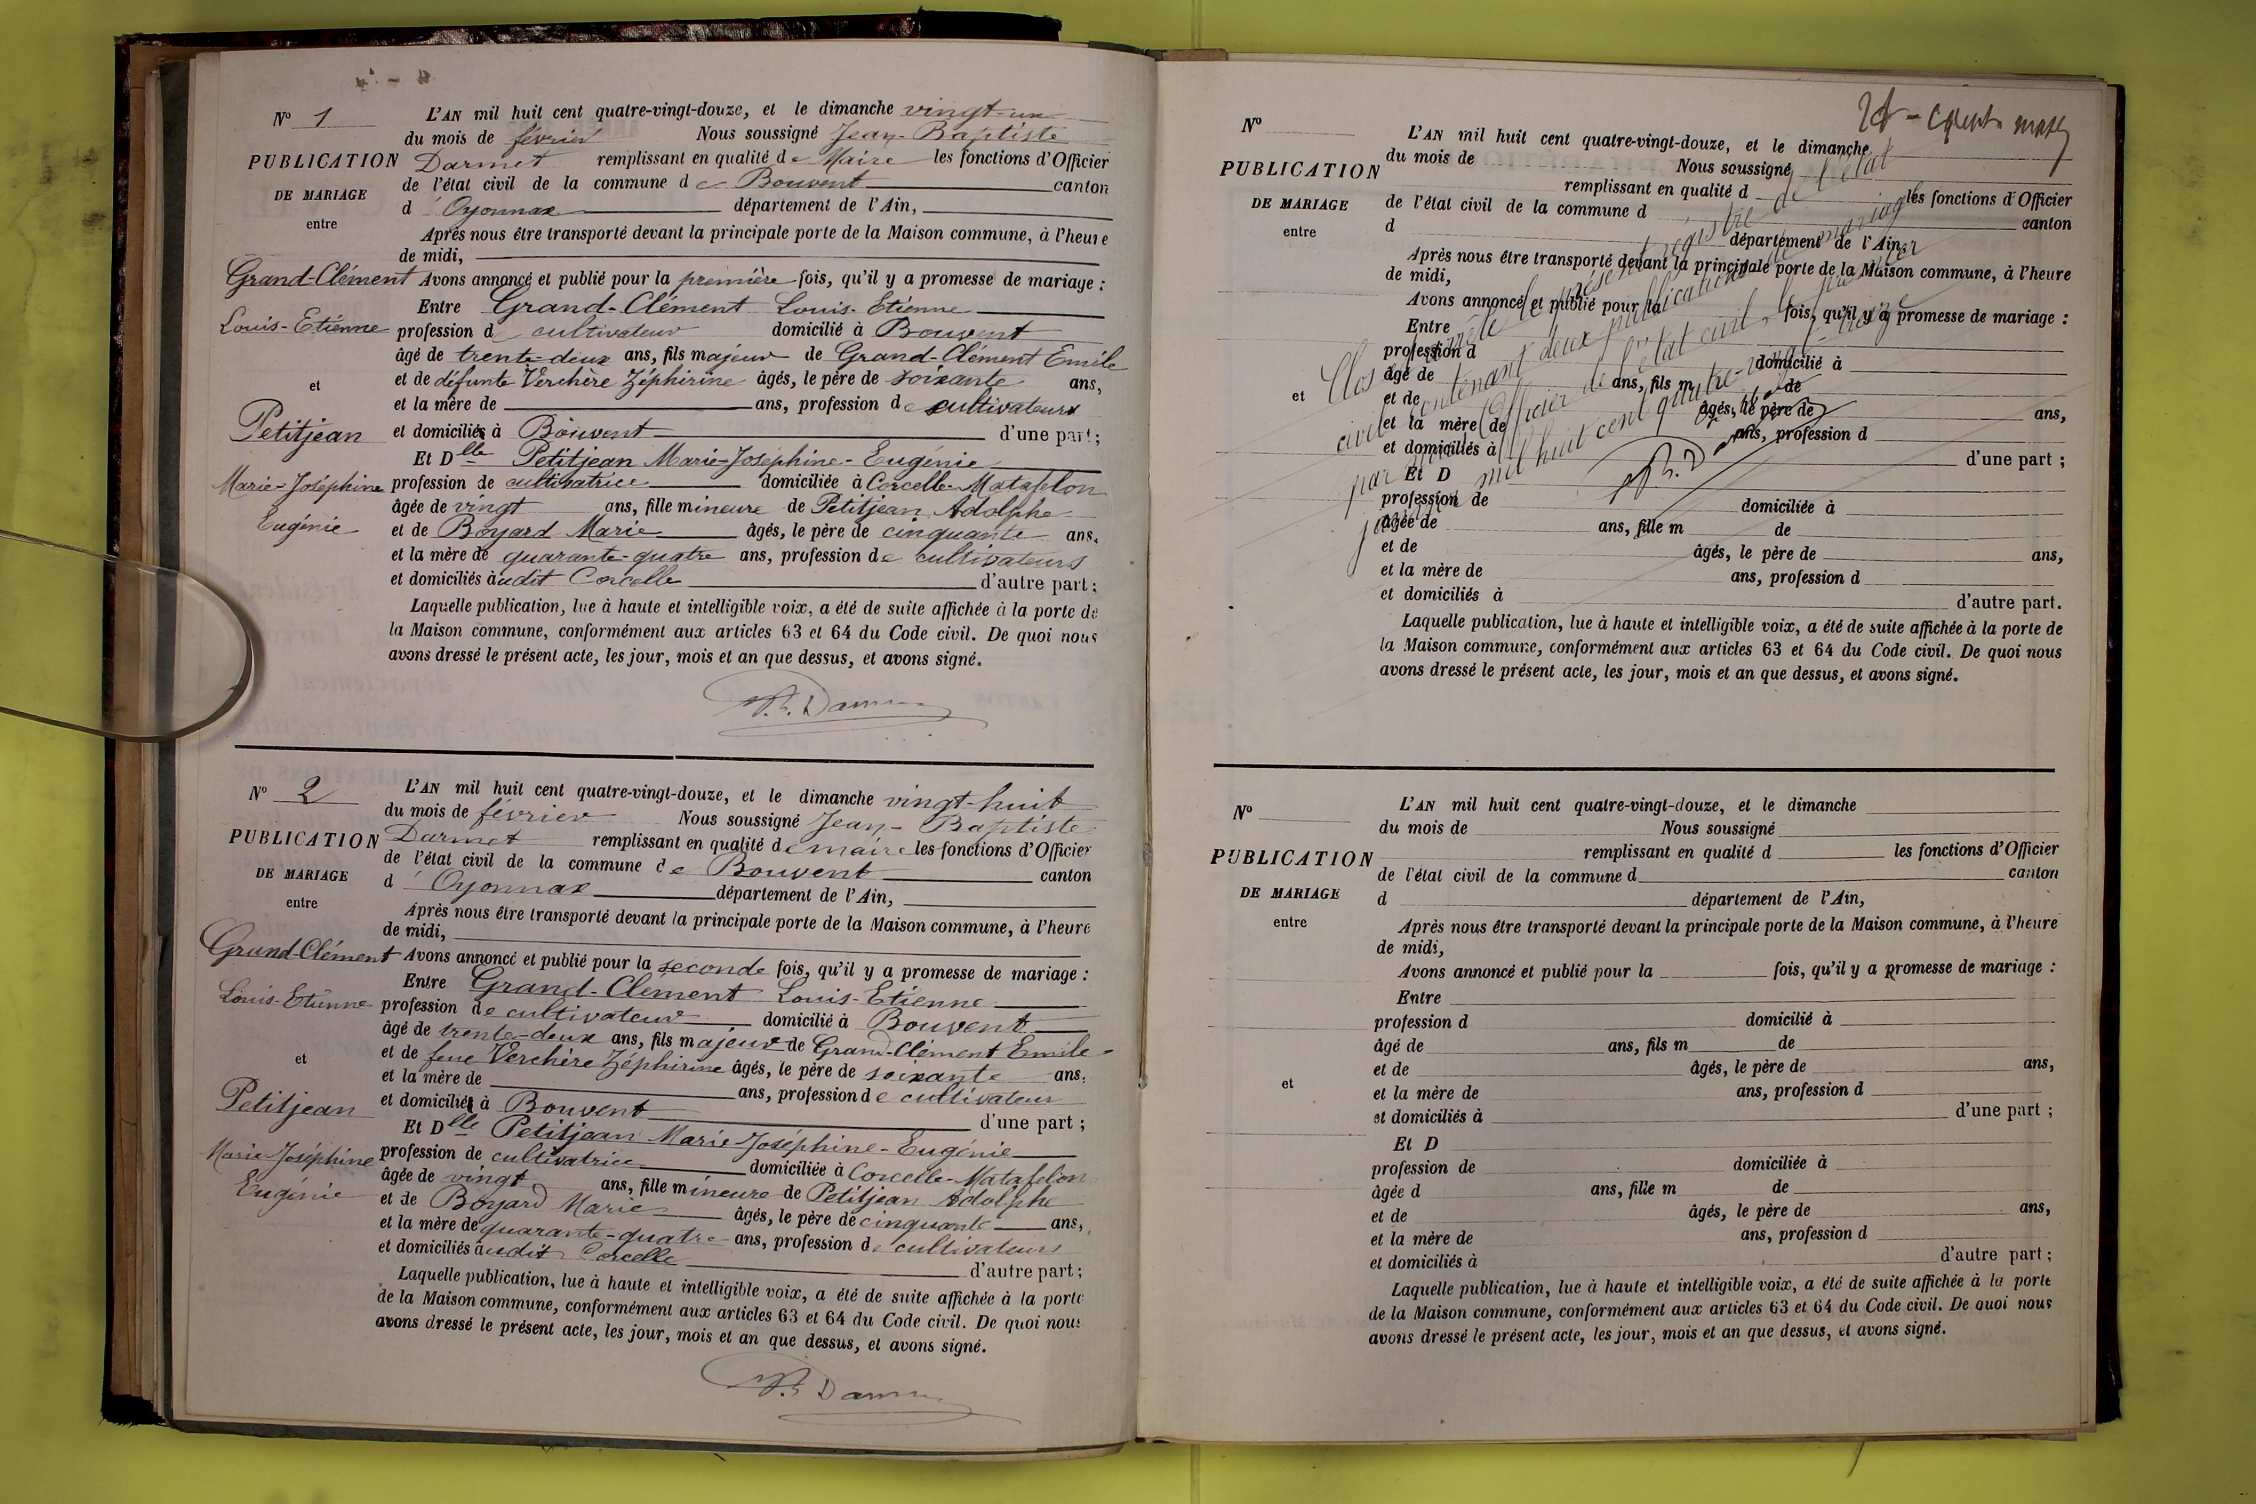 N° 1
L'AN mil huit cent quatre-vingt-douze, et le dimanche vingt-un
du mois de février Nous soussigné Jean-Baptiste
PUBLICATION
Darmet remplissant en qualité de Maire les fonctions d'Officier
de l'état civil de la commune de Bouvent canton
DE MARIAGE
d'Oyonnax département de l'Ain,
entre
Après nous être transporté devant la principale porte de la Maison commune, à l'heure
de midi,
Grand-Clément
Avons annoncé et publié pour la première fois, qu'il y a promesse de mariage :
Entre Grand-Clément Louis-Etienne
Louis-Etienne
profession de cultivateur domicilié à Bouvent
âgé de trente-deux ans, fils majeur de Grand-Clément Emile
et
et de défunte Verchère Zéphirine âgés, le père de soixante ans,
et la mère de ans, profession de cultivateurs
Petitjean
et domiciliés à Bouvent d'une part ;
Et Dlle Petitjean Marie-Joséphine-Eugénie
Marie-Joséphine
profession de cultivatrice domiciliée à Corcelle-Matafelon
âgée de vingt ans, fille mineure de Petitjean Adolphe
Eugénie
et de Boyard Marie âgés, le père de cinquante ans,
et la mère de quarante-quatre ans, profession de cultivateurs
et domiciliés audit Corcelle d'autre part ;
Laquelle publication, lue à haute et intelligible voix, a été de suite affichée à la porte de
la Maison commune, conformément aux articles 63 et 64 du Code civil. De quoi nous
avons dressé le présent acte, les jour, mois et an que dessus, et avons signé.
N° 2
L'AN mil huit cent quatre-vingt-douze, et le dimanche vingt-huit
du mois de février Nous soussigné Jean-Baptiste
PUBLICATION
Darmet remplissant en qualité de maire les fonctions d'Officier
de l'état civil de la commune de Bouvent canton
DE MARIAGE
d'Oyonnax département de l'Ain,
entre
Après nous être transporté devant la principale porte de la Maison commune, à l'heure
de midi,
Grand-Clément
Avons annoncé et publié pour la seconde fois, qu'il y a promesse de mariage :
Entre Grand-Clément Louis-Etienne
Louis-Etienne
profession de cultivateur domicilié à Bouvent
âgé de trente-deux ans, fils majeur de Grand-Clément Emile
et
et de feue Verchère Zéphirine âgés, le père de soixante ans,
et la mère de ans, profession de cultivateur
Petitjean
et domiciliés à Bouvent d'une part ;
Et Dlle Petitjean Marie Joséphine-Eugénie
Marie-Joséphine
profession de cultivatrice domiciliée à Corcelle-Matafelon
âgée de vingt ans, fille mineure de Petitjean Adolphe
Eugénie
et de Boyard Marie âgés, le père de cinquante ans,
et la mère de quarante-quatre ans, profession de cultivateurs
et domiciliés audit Corcelle d'autre part ;
Laquelle publication, lue à haute et intelligible voix, a été de suite affichée à la porte
de la Maison commune, conformément aux articles 63 et 64 du Code civil. De quoi nous
avons dressé le présent acte, les jour, mois et an que dessus, et avons signé.
N°
L'AN mil huit cent quatre-vingt-douze, et le dimanche
du mois de Nous soussigné
PUBLICATION
remplissant en qualité d les fonctions d'Officier
DE MARIAGE
de l'état civil de la commune d canton
entre
d département de l'Ain,
Après nous être transporté devant la principale porte de la Maison commune, à l'heure
de midi,
Avons annoncé et publié pour la fois, qu'il y a promesse de mariage :
Entre
profession d domicilié à
âgé de ans, fils m de
et
et de âgés, le père de ans,
et la mère de ans, profession d
et domiciliés à d'une part ;
Et D
profession de domiciliée à
âgée de ans, fille m de
et de âgés, le père de ans,
et la mère de ans, profession d
et domiciliés à d'autre part.
Laquelle publication, lue à haute et intelligible voix, a été de suite affichée à la porte de
la Maison commune, conformément aux articles 63 et 64 du Code civil. De quoi nous
avons dressé le présent acte, les jour, mois et an que dessus, et avons signé.
Clos et arrêté le présent registre de l'état
civil contenant deux publications de mariage
par l'officier de l'état civil, le premier
janvier mil huit cent quatre-vingt-treize
N°
L'AN mil huit cent quatre-vingt-douze, et le dimanche
du mois de Nous soussigné
PUBLICATION
remplissant en qualité d les fonctions d'Officier
de l'état civil de la commune d canton
DE MARIAGE
d département de l'Ain,
entre
Après nous être transporté devant la principale porte de la Maison commune, à l'heure
de midi,
Avons annoncé et publié pour la fois, qu'il y a promesse de mariage :
Entre
profession d domicilié à
âgé de ans, fils m de
et de âgés, le père de ans,
et
et la mère de ans, profession d
et domiciliés à d'une part ;
Et D
profession de domiciliée à
âgée d ans, fille m de
et de âgés, le père de ans,
et la mère de ans, profession d
et domiciliés à d'autre part ;
Laquelle publication, lue à haute et intelligible voix, a été de suite affichée à la porte
de la Maison commune, conformément aux articles 63 et 64 du Code civil. De quoi nous
avons dressé le présent acte, les jour, mois et an que dessus, et avons signé.